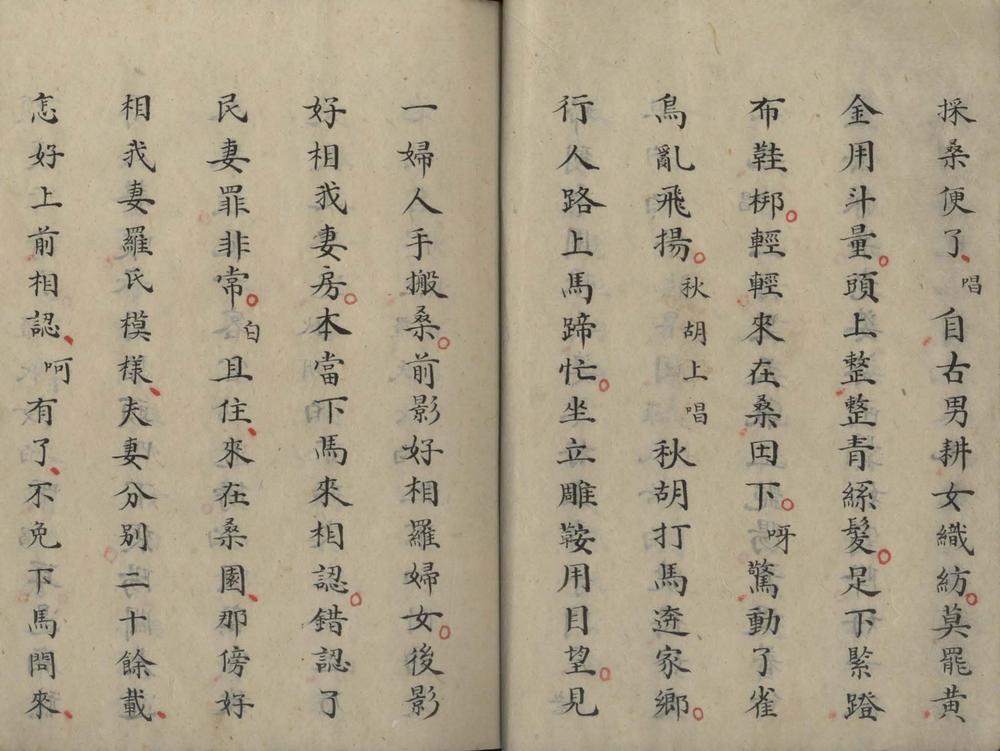 採桑便了、唱自古男耕女織紡。莫罷黃
金用斗量。頭上整整青絲髮。足下緊蹬
布鞋梆。輕輕來在桑田下。呀驚動了雀
鳥亂飛揚。秋胡上唱秋胡打馬奔家鄉。
行人路上馬蹄忙。坐立雕鞍用目望。見
一婦人手搬桑。前影好相羅婦女。後影
好相我妻房。本當下馬來相認。錯認了
民妻罪非常。白且住、來在桑園、那傍好
相我妻羅氏模樣、夫妻分別二十餘載、
怎好上前相認、呵有了、不免下馬問來、